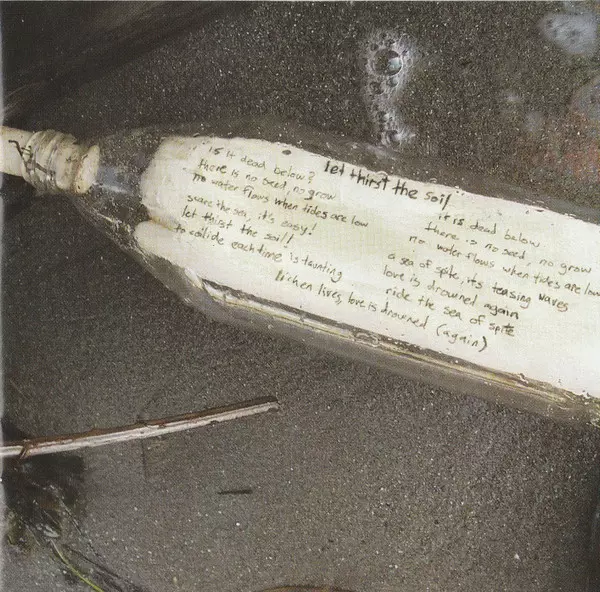 let thirst the soil
is it dead below?
there is no seed, no grow
no water flows when tides are low
scare the sea, it's easy!
let thirst the soil!
to collide each time is taunting
lichen lives, love is drowned (again)
it is dead below
there is no seed, no grow
no water flows when tides are low
a sea of spite, its teasing waves
love is drowned again
ride the sea of spite